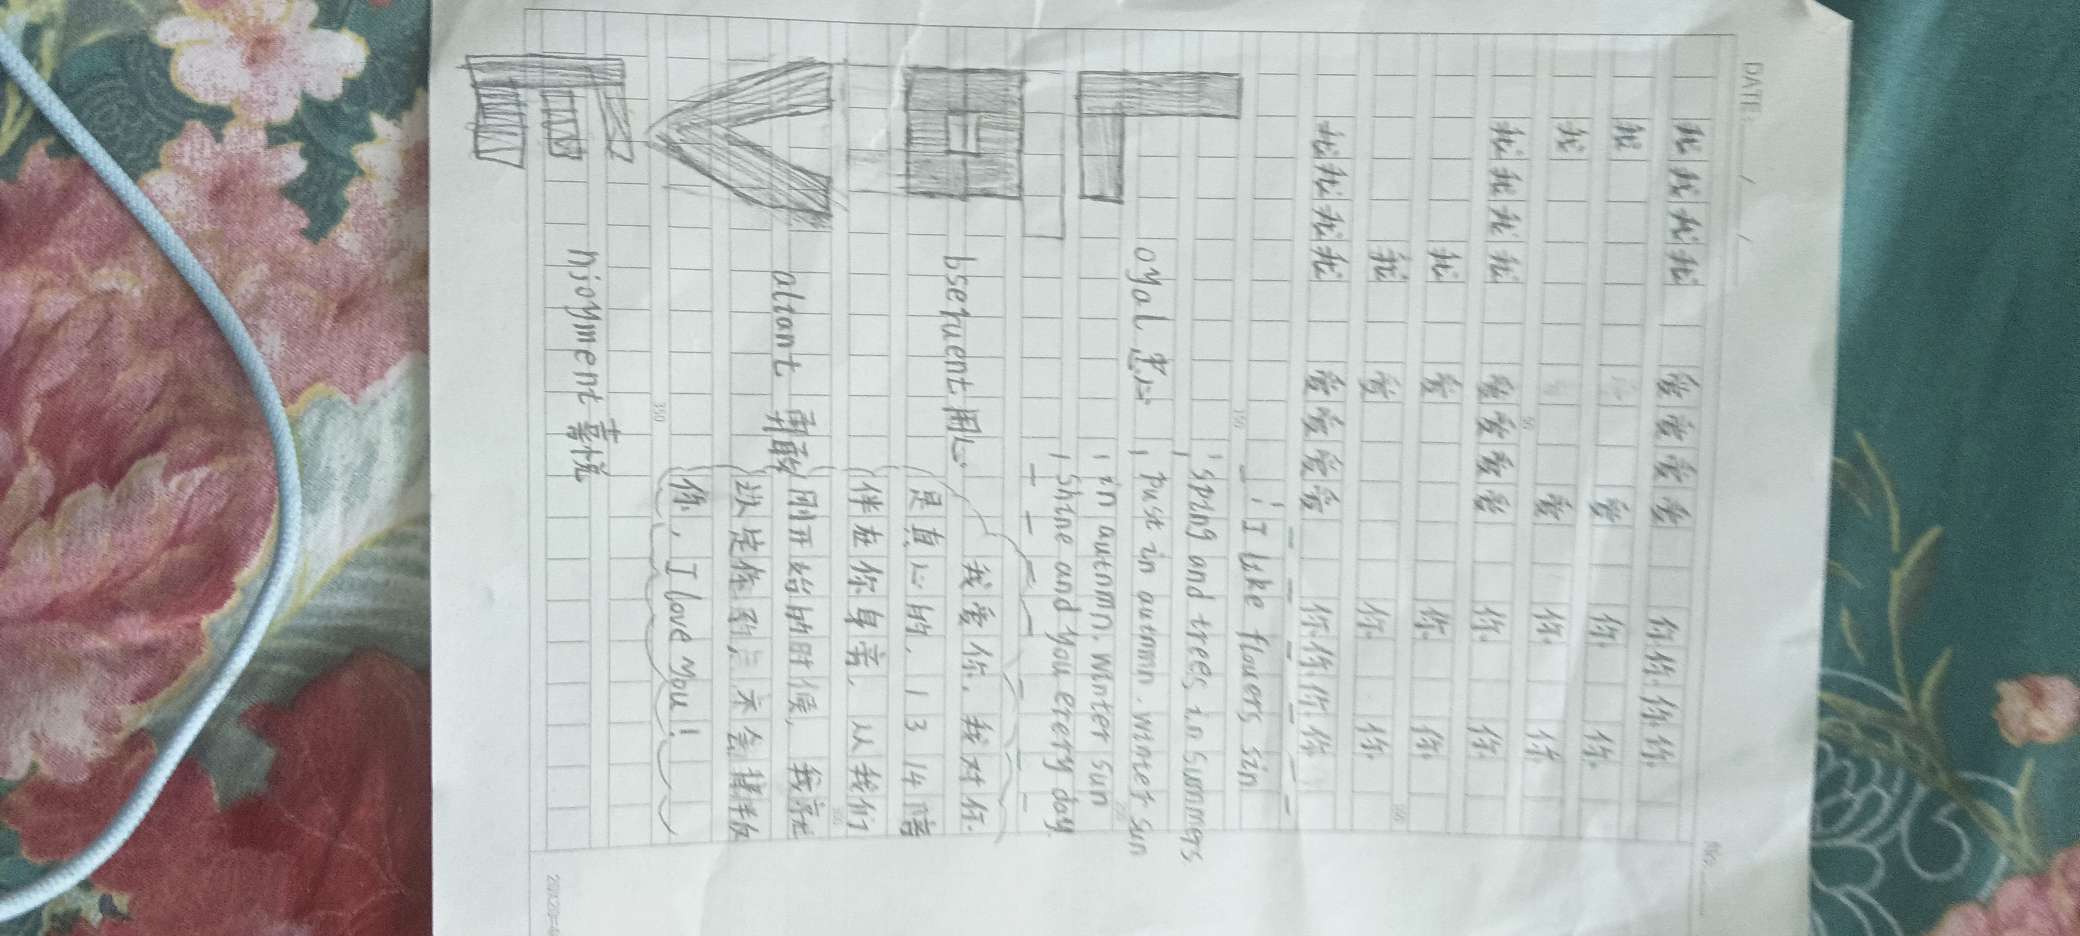 DATE: / /
No.
我我我我 爱爱爱爱 你你你你
我 爱 你 你
我 爱 你 你
我我我我 爱爱爱爱 你 你
我 爱 你 你
我 爱 你 你
我我我我 爱爱爱爱 你你你你
I like flowers sin
L
spzng and trees in summers
oyal 忠心
pust in autnmn. winter sun
in autnmn. winter sun
shine and you erery day.
O
bseruent 用心
我爱你, 我对你
是真心的, 1314陪
伴在你身旁, 从我们
V
altant 勇敢
刚开始的时候, 我就
认定你了,
你, I love you!
E
njoyment 喜悦